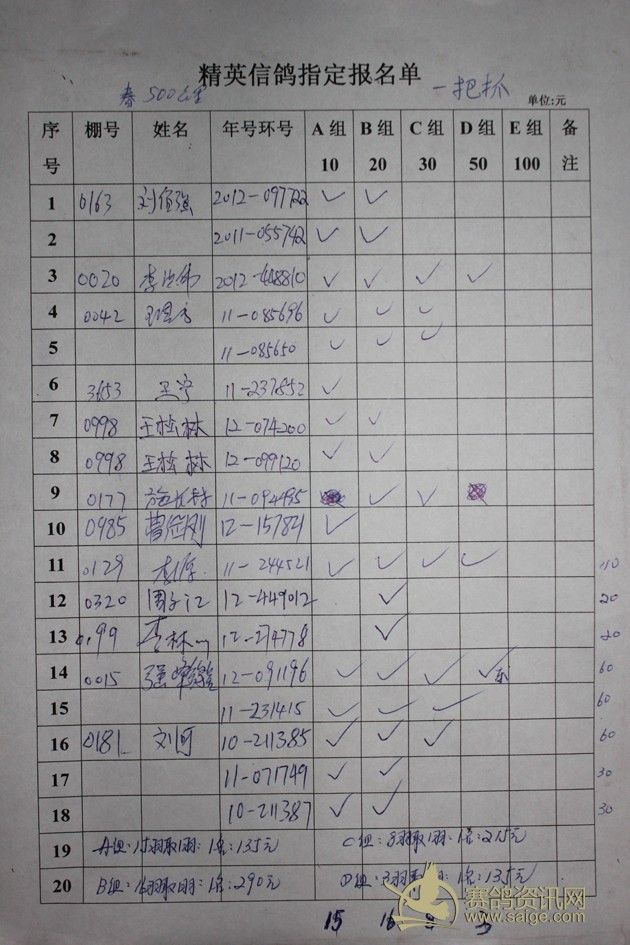 精英信鸽指定报名单
春 500公里 一把抓
单位:元
序号 棚号 姓名 年号环号 A组10 B组20 C组30 D组50 E组100 备注
1 0163 刘佰强 2012-097722 ✓ ✓
2 2011-055742 ✓ ✓
3 0020 2012-448810 ✓ ✓ ✓ ✓
4 0042 11-085696 ✓ ✓ ✓
5 11-085650 ✓ ✓ ✓
6 3653 王宇 11-237852 ✓
7 0998 王松林 12-074200 ✓ ✓
8 0998 王松林 12-099120 ✓ ✓
9 0177 11-094495 ✓ ✓
10 0985 ✓
11 0129 11-244521 ✓ ✓ ✓ ✓ 110
12 0320 12-449012 ✓ 20
13 0199 12-274778 ✓ 20
14 0015 12-091196 ✓ ✓ ✓ ✓ 60
15 11-231415 ✓ ✓ ✓ 60
16 0181 刘河 10-211385 ✓ ✓ ✓ 60
17 11-071749 ✓ ✓ 30
18 10-211387 ✓ ✓ 30
19 A组:15羽取1羽:1名:135元 C组:8羽取1羽:1名:215元
20 B组:16羽取1羽:1名:290元 D组:3羽取1羽:1名:135元
15 16
赛鸽资讯网
www.saige.com